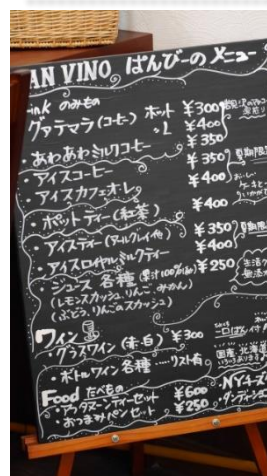 AN VINO ぱんびーのメニュー
ink のみもの
グァテマラ(コーヒー) ホット ¥300
¥400
・あわあわミルクコーヒー ¥350
・アイスコーヒー ¥350
・アイスカフェオレ ¥400
・ポットティー(紅茶) ¥400
・アイスティー(アールグレイ他) ¥350
・アイスロイヤルミルクティー ¥400
・ジュース 各種(果汁100%他) ¥250
(レモンスカッシュ、りんご、みかん)
(ぶどう、りんごのスカッシュ)
ワイン
・グラスワイン(赤・白) ¥300
・ボトルワイン各種……リスト有
Food たべもの
・アフタヌーンティーセット ¥600
・おつまみパンセット ¥250
国産・北海道
・NYチーズ